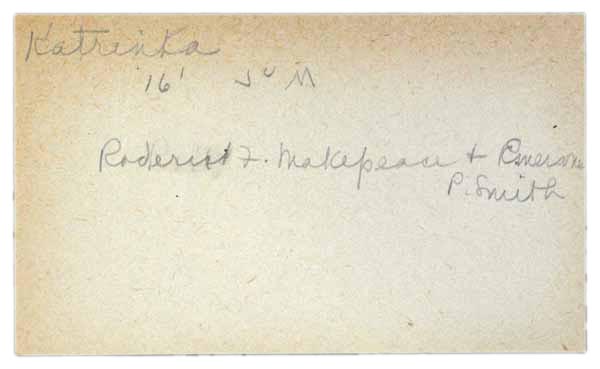 Katrinka
16' J U M
Roderick F. Makepeace + Emerson
P. Smith